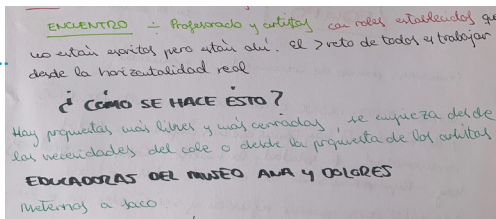 ENCUENTRO ÷ Profesorado y artistas con roles establecidos que
no están escritos pero están ahí. El > reto de todos es trabajar
desde la horizontalidad real
¿ CÓMO SE HACE ÉSTO?
Hay propuestas más libres y más cerradas, se empieza desde
las necesidades del cole o desde la propuesta de los artistas
EDUCADORAS DEL MUSEO ANA Y DOLORES
Meternos a saco